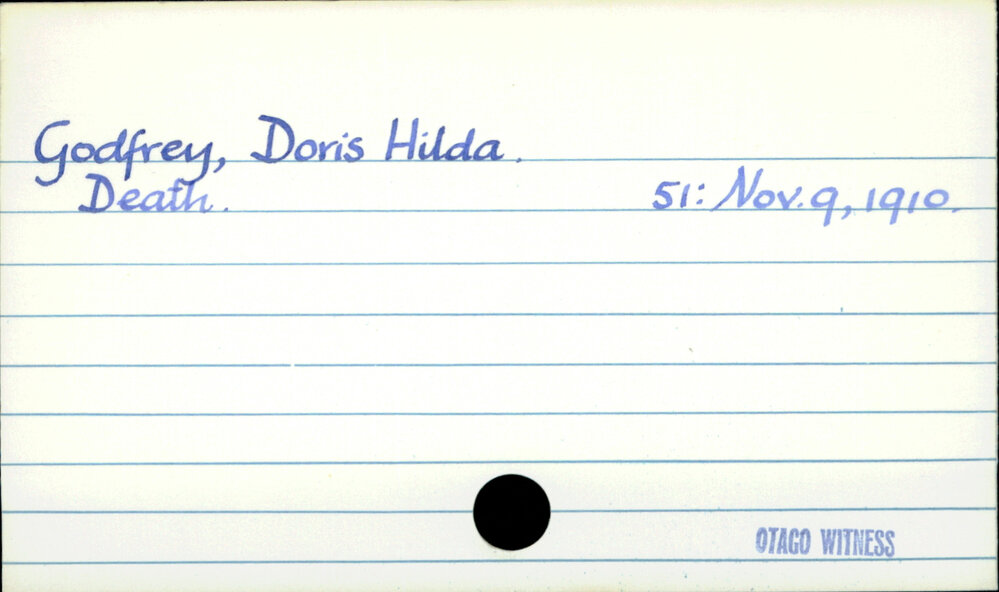 Godfrey, Doris Hilda.
Death. 51: Nov. 9, 1910.
OTAGO WITNESS